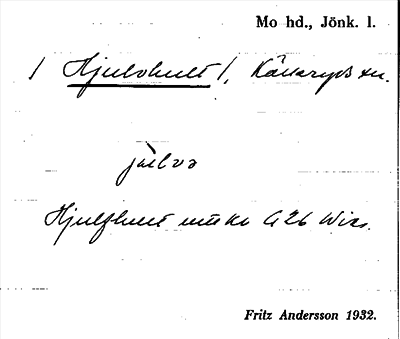 Mo hd., Jönk. l.
/ Hjulvhult /, Källeryds sn.
julva
Hjulfhult G 26 Wiss.
Fritz Andersson 1932.